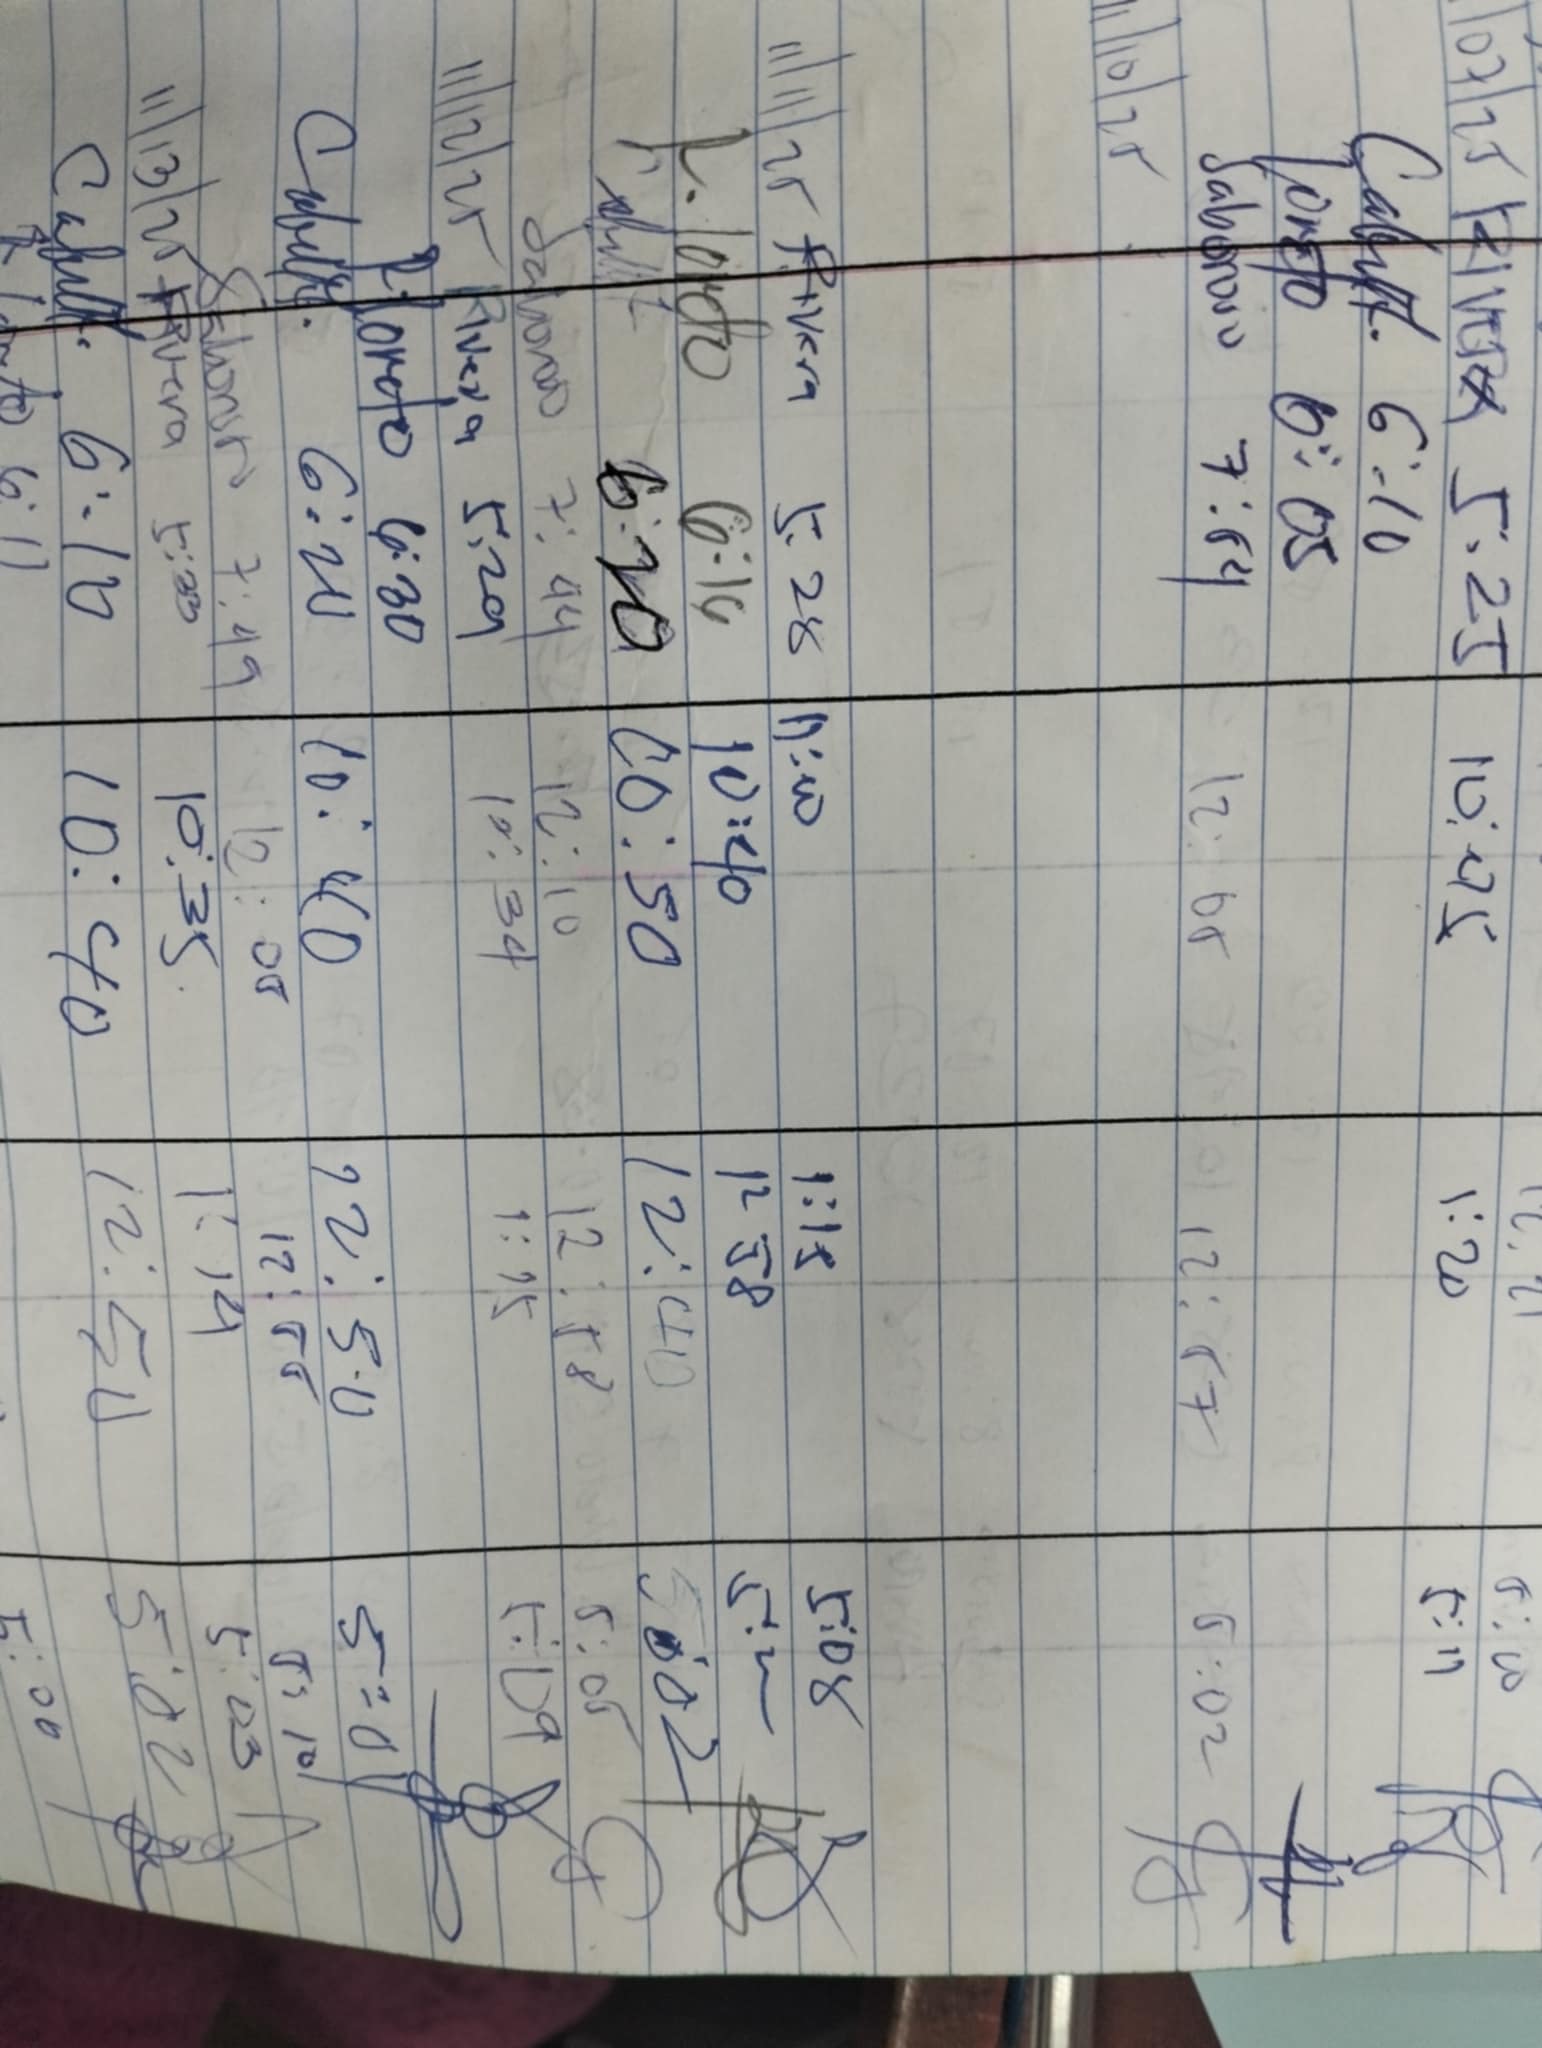 12:21 5:10
/07/25 RIVERA 5:25 10:45 1:20 5:11
Cabult. 6:10
Loreto 6:05
Saborio 7:54 12:05 12:57 5:02
11/10/25
11/11/25 Rivera 5:28 1:15 5:08
R. Loreto 6:16 10:40 12 58
10:50 12:40 5:02
Saborio 7:44 12:10 12:58 5:05
11/12/25 Rivera 5:29 10:34 1:15 5:09
R. Loreto 6:30
Cabult. 6:21 10:40 12:51 5:01
Saborio 7:49 12:05 12:55 5:10
11/13/25 Rivera 5:33 10:35 1:14 5:03
Cabult. 6:10 10:40 12:51 5:02
6:11 5:00